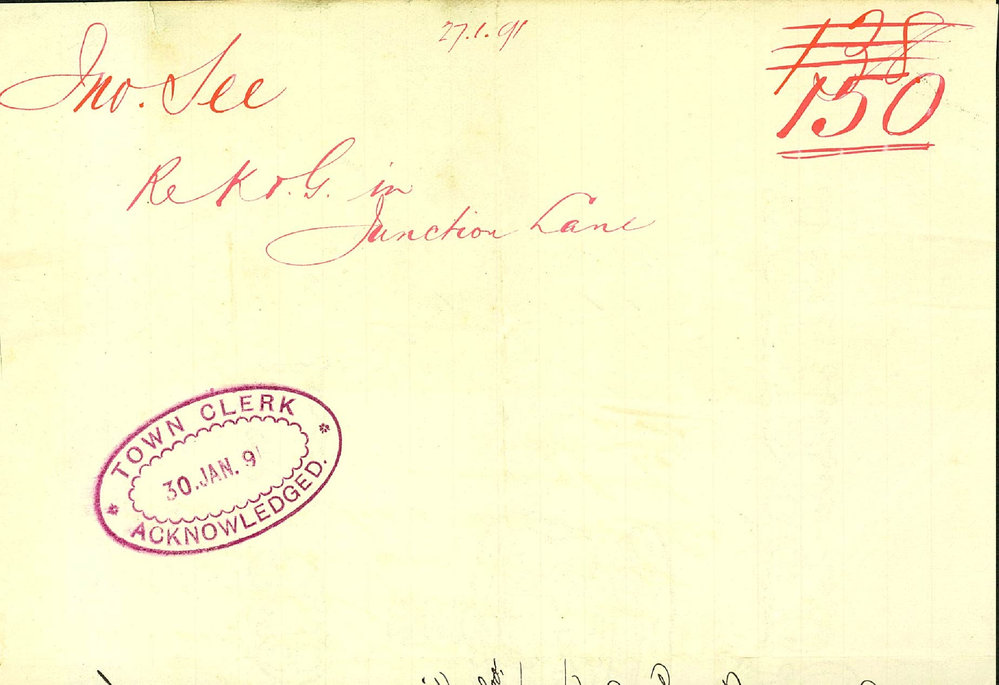 27.1.91
138
150
Jno. See
Re K & G. in
Junction Lane
TOWN CLERK
30. JAN. 91
ACKNOWLEDGED.